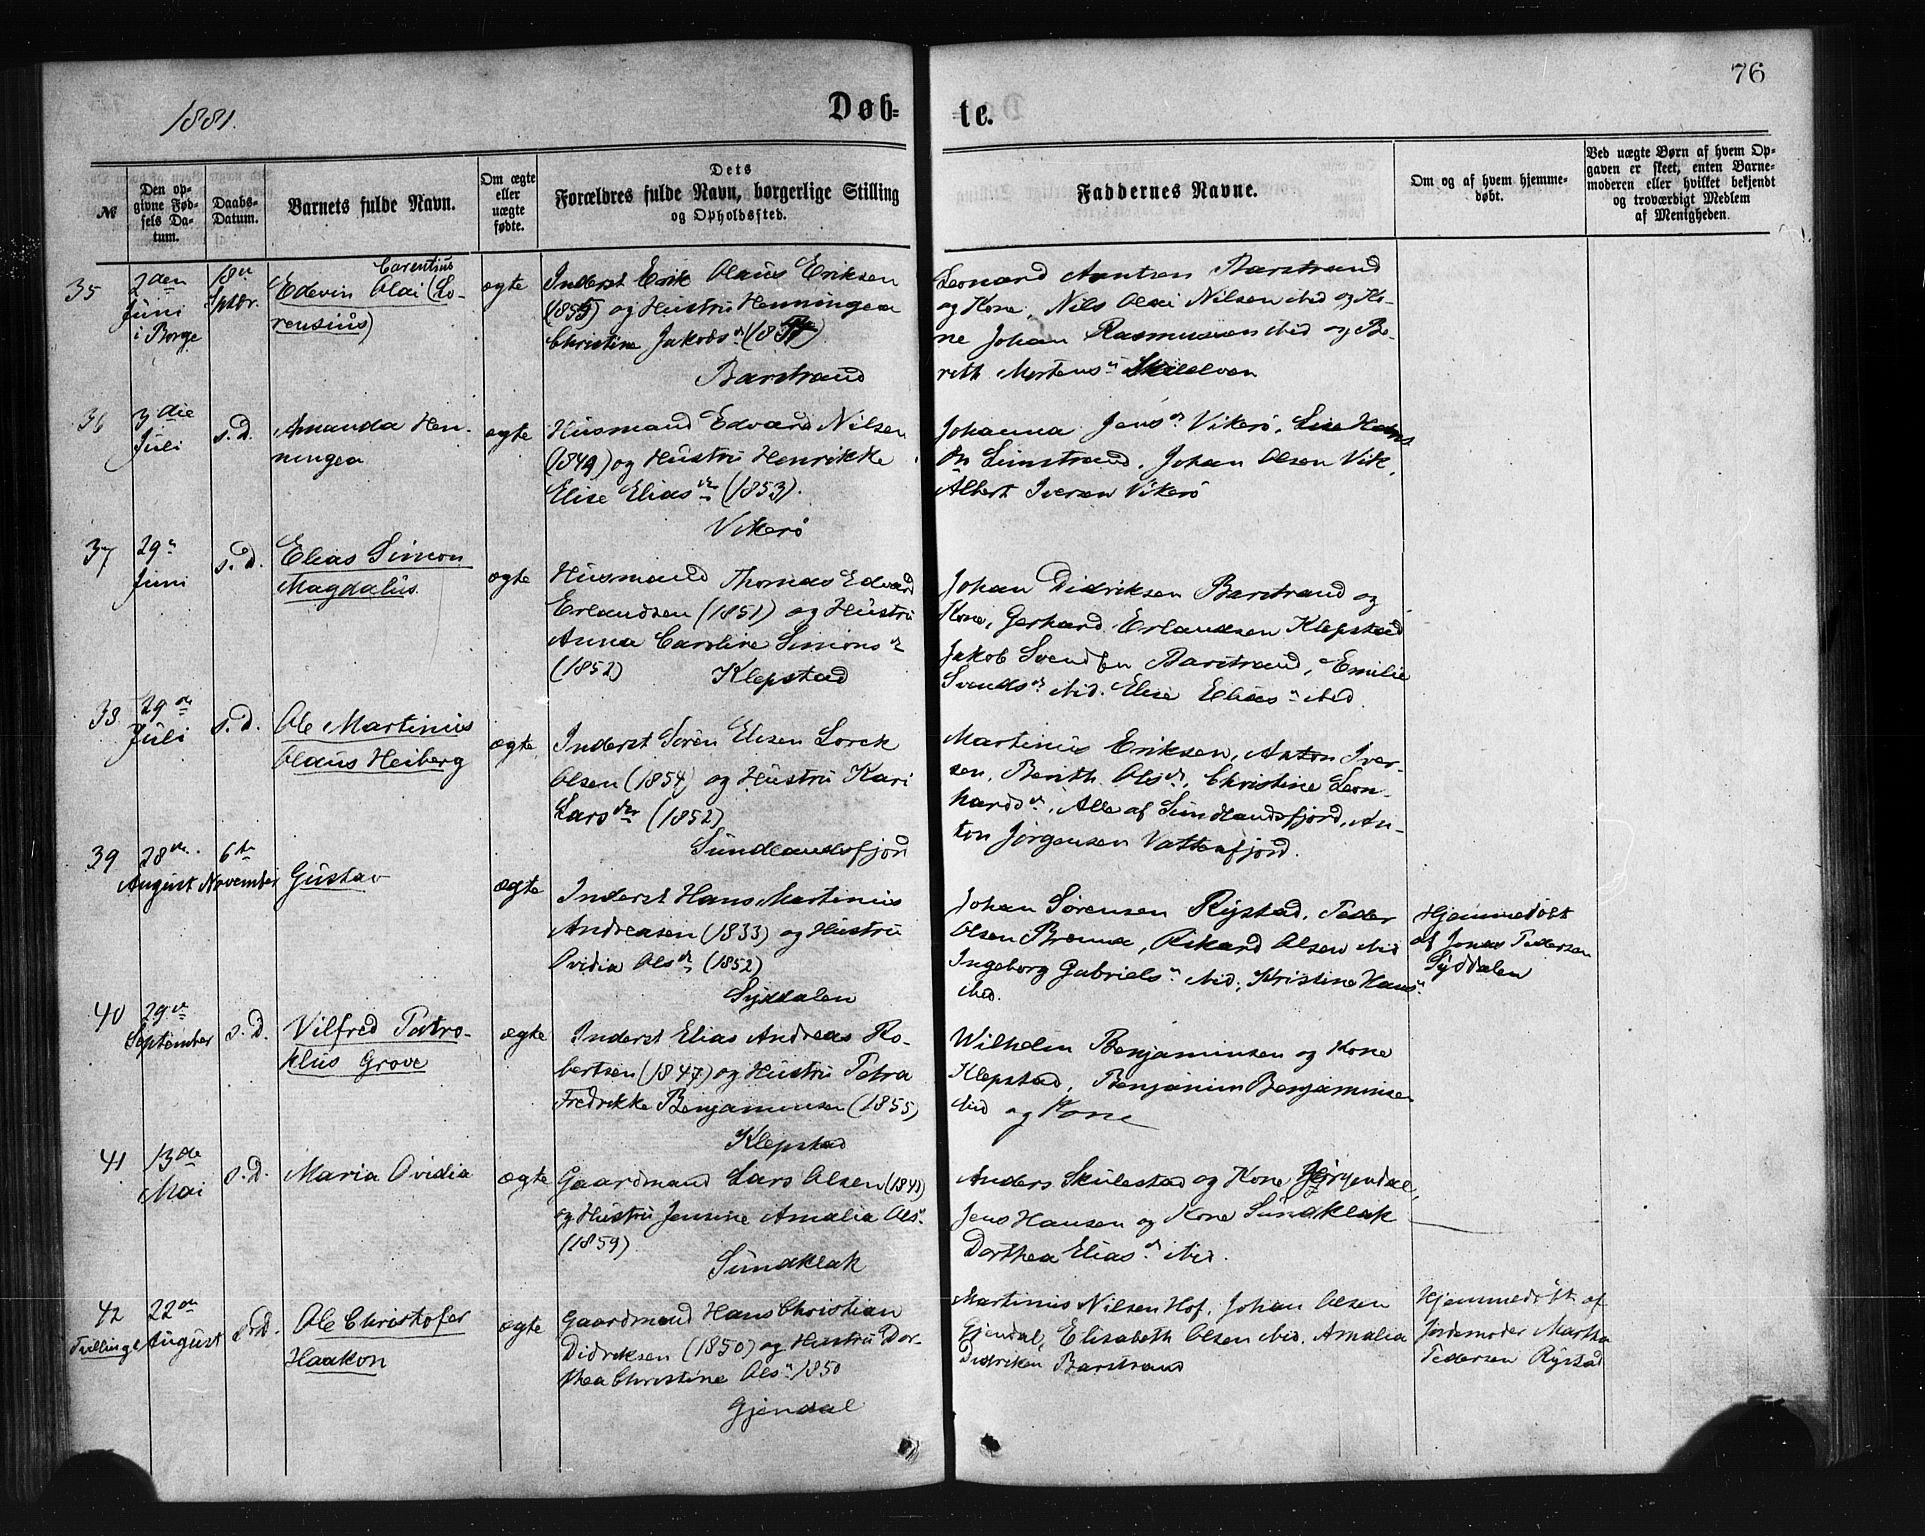 76
1881.
Døb-
te.
№
Den op-
givne Fød-
sels Da-
tum.
Daabs-
Datum.
Barnets fulde Navn.
Om ægte
eller
uægte
fødte.
Dets
Forældres fulde Navn, borgerlige Stilling
og Opholdssted.
Faddernes Navne.
Om og af hvem hjemme-
døbt.
Ved uægte Børn af hvem Op-
gaven er skeet, enten Barne-
moderen eller hvilket bekjendt
og troværdigt Medlem
af Menigheden.
35
2den
Juni
i Borge
18de
Septbr.
Carentius
Edevin Olai (Lo-
rensius)
ægte
Inderst Erik Olaus Eriksen
(1855) og Hustru Henningea
Christine Jakobs dr
Barstrand
Leonard Arntsen Barstrand
og Kone, Nils Olai Nilsen ibid og Ko-
ne Johan Rasmussen ibid og Be-
reth Mortens dr
36
3die
Juli
s. D.
Amanda Hen-
ningea
ægte
Husmand Edvard Nilsen
(1849) og Hustru Henrikke
Elise Elias dtr (1853).
Vikerø
Johanna Jens dr Vikerø, Lise Hans
dr Limstrand, Johan Olsen Vik,
Albert Iversen Vikerø
37
29de
Juni
s. D.
Elias Simon
Magdalus.
ægte
Husmand Thomas Edvard
Erlandsen (1851) og Hustru
Anna Caroline Simons dr
(1852) Klepstad
Johan Didriksen Barstrand og
Kone, Gerhard Erlandsen Klepstad
Jakob Svendsen Barstrand, Emilie
Svends dr ibid. Elise Elias dr ibid.
38
29de
Juli
s. D.
Ole Martinius
Olaus Heiberg
ægte
Inderst Søren Elisen Lorck
Olsen (1854) og Hustru Kari
Lars dtr (1852)
Sundlandsfjord
Martinus Eriksen, Anton Iver-
sen, Berith Ols dr, Christine Leon-
hards dr, Alle af Sundlandsfjord, An-
ton Jörgensen Vatterfjord.
39
28de
August
6te
November
Gustav
ægte
Inderst Hans Martinius
Andreasen (1833) og Hustru
Ovidia Ols dr (1852)
Syddalen
Johan Sørensen Rystad, Peder
Olsen Brenna, Rikard Olsen ibid
Ingeborg Gabriels dr ibid, Kristine Hans dr
ibid.
Hjemmedøbt
af Jonas Pedersen
Syddalen
40
29de
September
s. D.
Vilfred Patro-
klus Grove
ægte
Inderst Elias Andreas Ro-
bertsen (1847) og Hustru Petra
Fredrikke Benjaminsen (1855)
Klepstad
Wilhelm Benjaminsen og Kone
Klepstad, Benjamin Benjaminsen
ibid og Kone
41
13de
Mai
s. D.
Maria Ovidia
ægte
Gaardmand Lars Olsen
og Hustru Jensine Amalia Ols dr
(1859)
Sundklak
Anders Skulestad og Kone
Jens Hansen og Kone Sundklak
Dorthea Elias dr ibid.
42
Tvillinge
22de
August
s. D.
Ole Christofer
Haakon
ægte
Gaardmand Hans Christian
Didriksen (1850) og Hustru Dor-
thea Christine Ols dr 1850
Gjendal
Martinus Nilsen Hof, Johan Olsen
Gjendal, Elisabeth Olsen ibid, Amalia
Didriksen Barstrand
Hjemmedøbt af
Jordemoder Martha
Pedersen Rystad